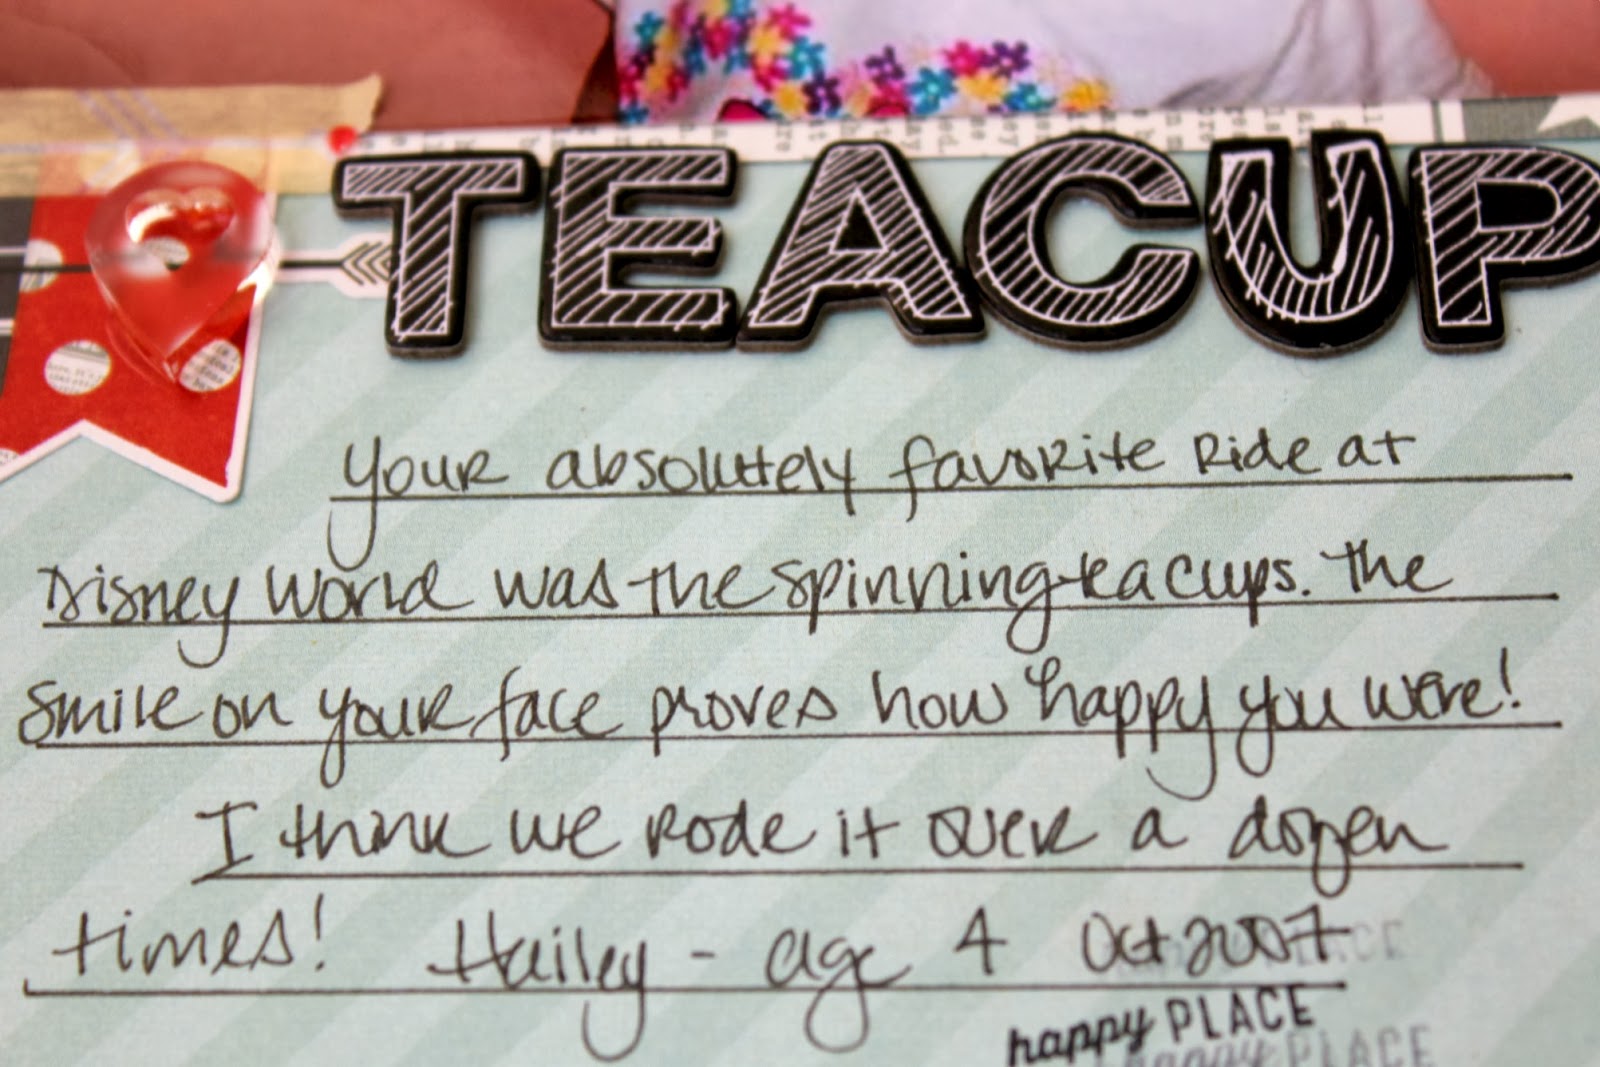 TEACUP
your absolutely favorite ride at
Disney World was the spinning teacups. The
smile on your face proves how happy you were!
I think we rode it over a dozen
times! Hailey - age 4 Oct 2007
happy PLACE
happy PLACE